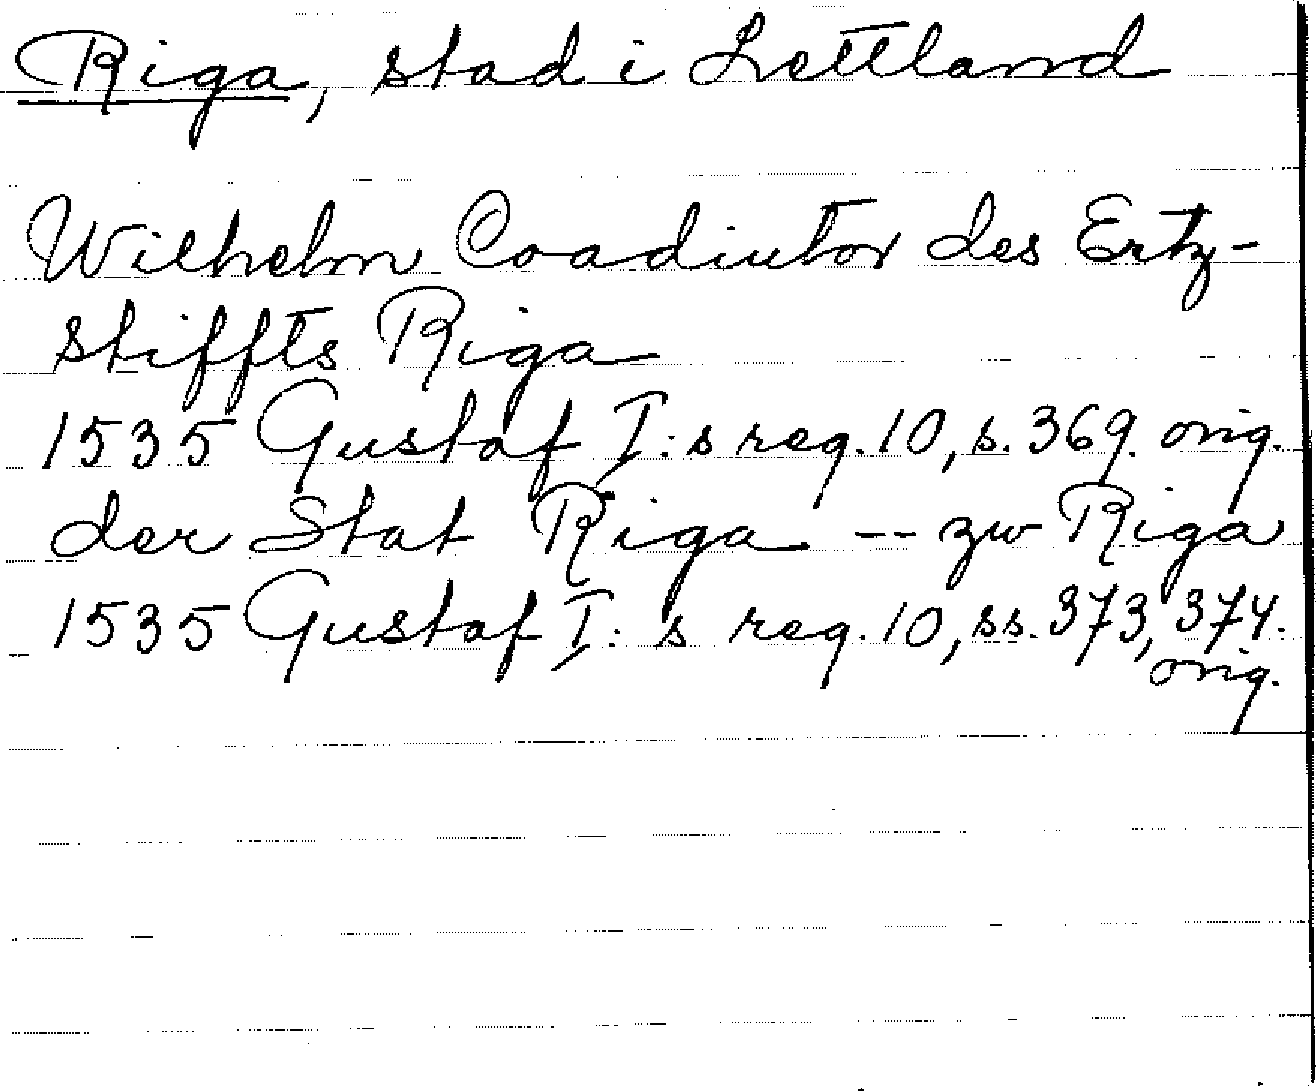 Riga, stad i Lettland
Wilhelm Coadiutor des Ertz-
stiffts Riga
1535 Gustaf I:s reg. 10, s. 369. orig.
der Stat Riga -- zw Riga
1535 Gustaf I:s reg. 10, ss. 373, 374.
orig.